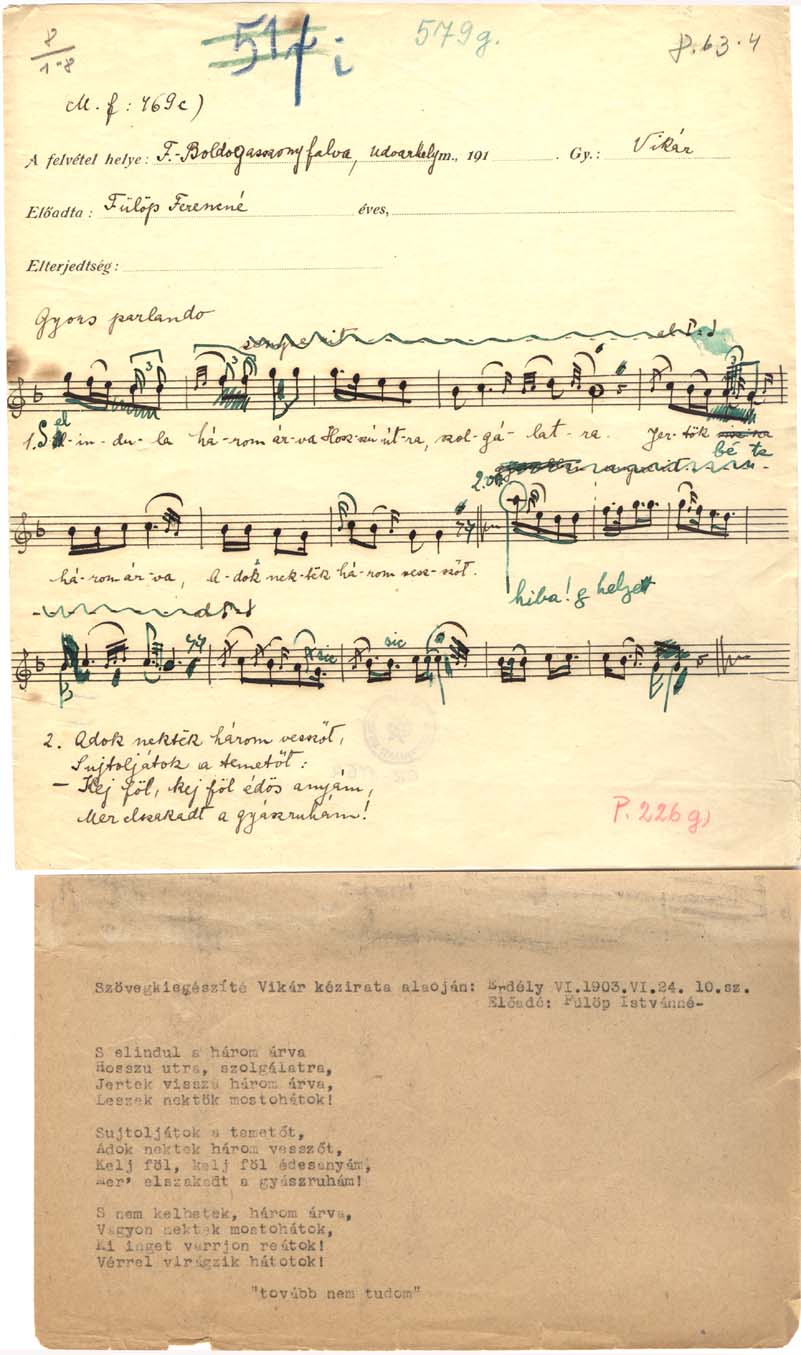 8
1-8
579g.
P. 63. 4
M. f: 769c)
A felvétel helye: F.-Boldogasszonyfalva, Udvarhelym., 191 . Gy.: Vikár
Előadta: Fülöp Ferencné éves,
Elterjedtség:
Gyors parlando
3 3 3
1. S el-in-du-la há-rom ár-va Hosz-szú út-ra, szol-gá-lat-ra. Jer-tök
bé
2.
há-rom ár-va, A-dok nek-tek há-rom vesz-szőt.
hiba! g helyett
sic sic
2. Adok nektek három vesszőt,
Sujtoljátok a temetőt:
– Kej föl, kej föl édös anyám,
Mer elszakadt a gyászruhám!
P. 226g)
Szövegkiegészítő Vikár kézirata alapján: Erdély VI.1903.VI.24. 10.sz.
Előadó: Fülöp Istvánné-
S elindul a három árva
Hosszu utra, szolgálatra,
Jertek vissza három árva,
Leszek nektök mostohátok!
Sujtoljátok a temetőt,
Adok nektek három vesszőt,
Kelj föl, kelj föl édesanyám,
Mer' elszakadt a gyászruhám!
S nem kelhetek, három árva,
Vagyon nektek mostohátok,
Ki inget varrjon reátok!
Vérrel virágzik hátotok!
"tovább nem tudom"